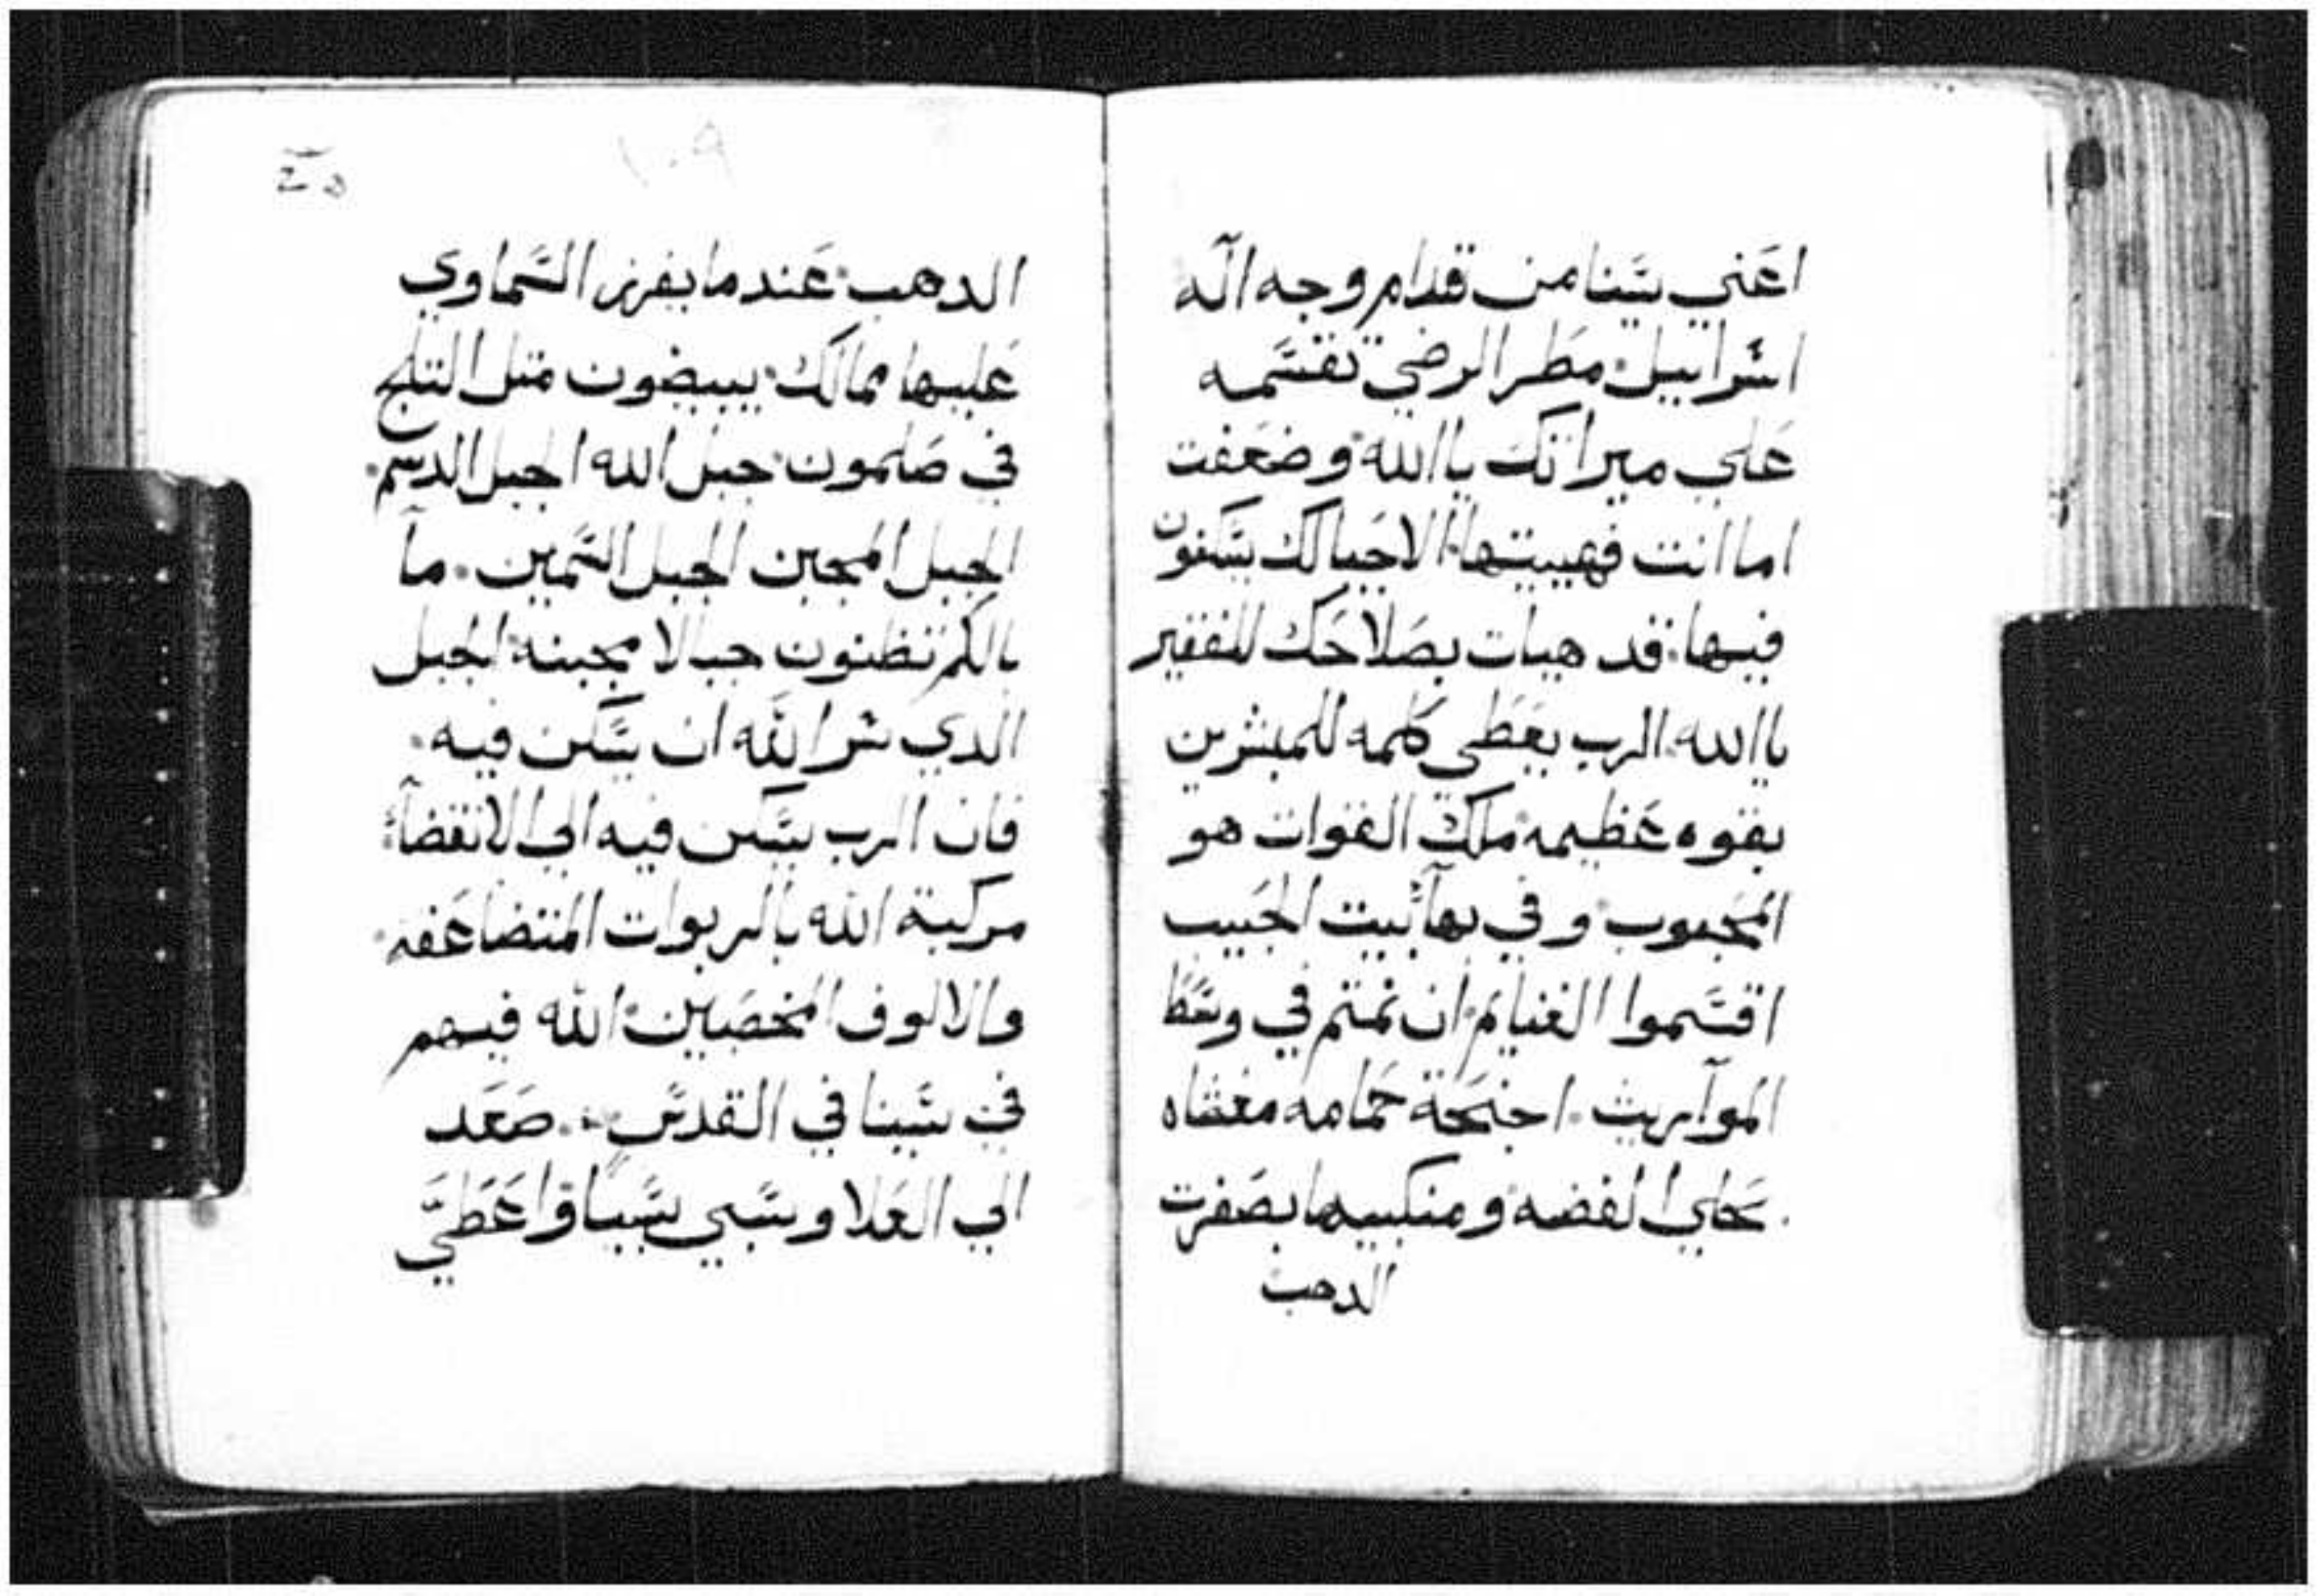 اعني سينا من قدام وجه اله
اسراييل مطر الرضي تقسمه
علي ميراتك ياالله وضعفت
اما انت فهييتها الاحيا لك يسكنون
فيها قد هيات بصلاحك للفقير
ياالله الرب يعطي كلمه للمبشرين
بقوه عظيمه ملك القوات هو
المحبوب وفي بهآ بيت الحبيب
اقتسموا الغنايم ان نمتم في وسط
المواريث اجنحة حمامه مغشاه
بحلي الفضه ومنكبيها بصفرت
الدهب
١٠٩
الدهب عندما يفرز السماوي
عليها ممالك يبيضون متل التلج
في صلمون جبل الله الجبل الدسم
الجبل المجبن الجبل السمين ما
بالكم تظنون جبالا مجبنه الجبل
الدي سر الله ان يسكن فيه
فان الرب يسكن فيه الي الانقضآ
مركبة الله بالربوات المتضاعفه
والالوف المخصبين الله فيهم
في سينا في القدس صعد
الي العلا وسبي سبيا واعطي